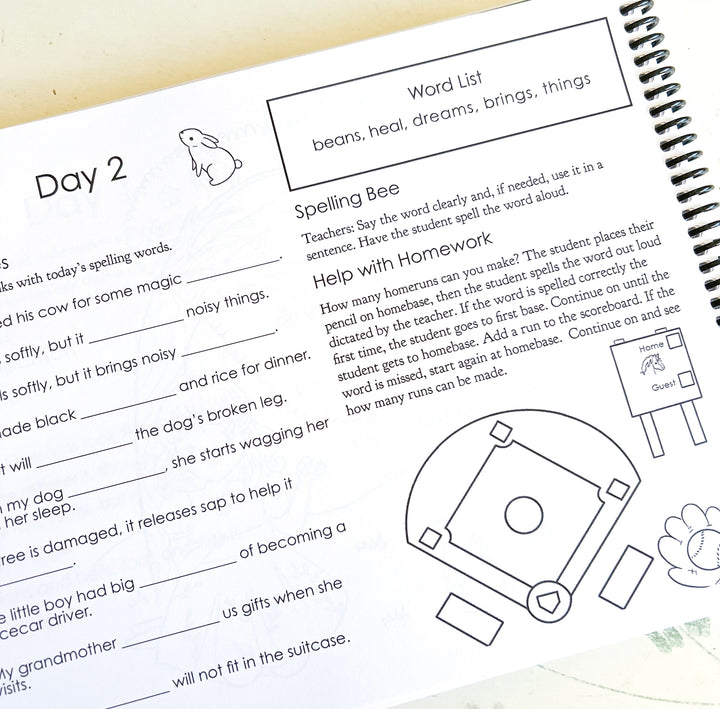 Day 2
lks with today's spelling words.
ed his cow for some magic __________.
softly, but it __________ noisy things.
ls softly, but it brings noisy __________.
ade black __________ and rice for dinner.
t will __________ the dog's broken leg.
my dog __________, she starts wagging her
her sleep.
ree is damaged, it releases sap to help it
__________.
e little boy had big __________ of becoming a
cecar driver.
My grandmother __________ us gifts when she
visits.
__________ will not fit in the suitcase.
Word List
beans, heal, dreams, brings, things
Spelling Bee
Teachers: Say the word clearly and, if needed, use it in a
sentence. Have the student spell the word aloud.
Help with Homework
How many homeruns can you make? The student places their
pencil on homebase, then the student spells the word out loud
dictated by the teacher. If the word is spelled correctly the
first time, the student goes to first base. Continue on until the
student gets to homebase. Add a run to the scoreboard. If the
word is missed, start again at homebase. Continue on and see
how many runs can be made.
Home
Guest